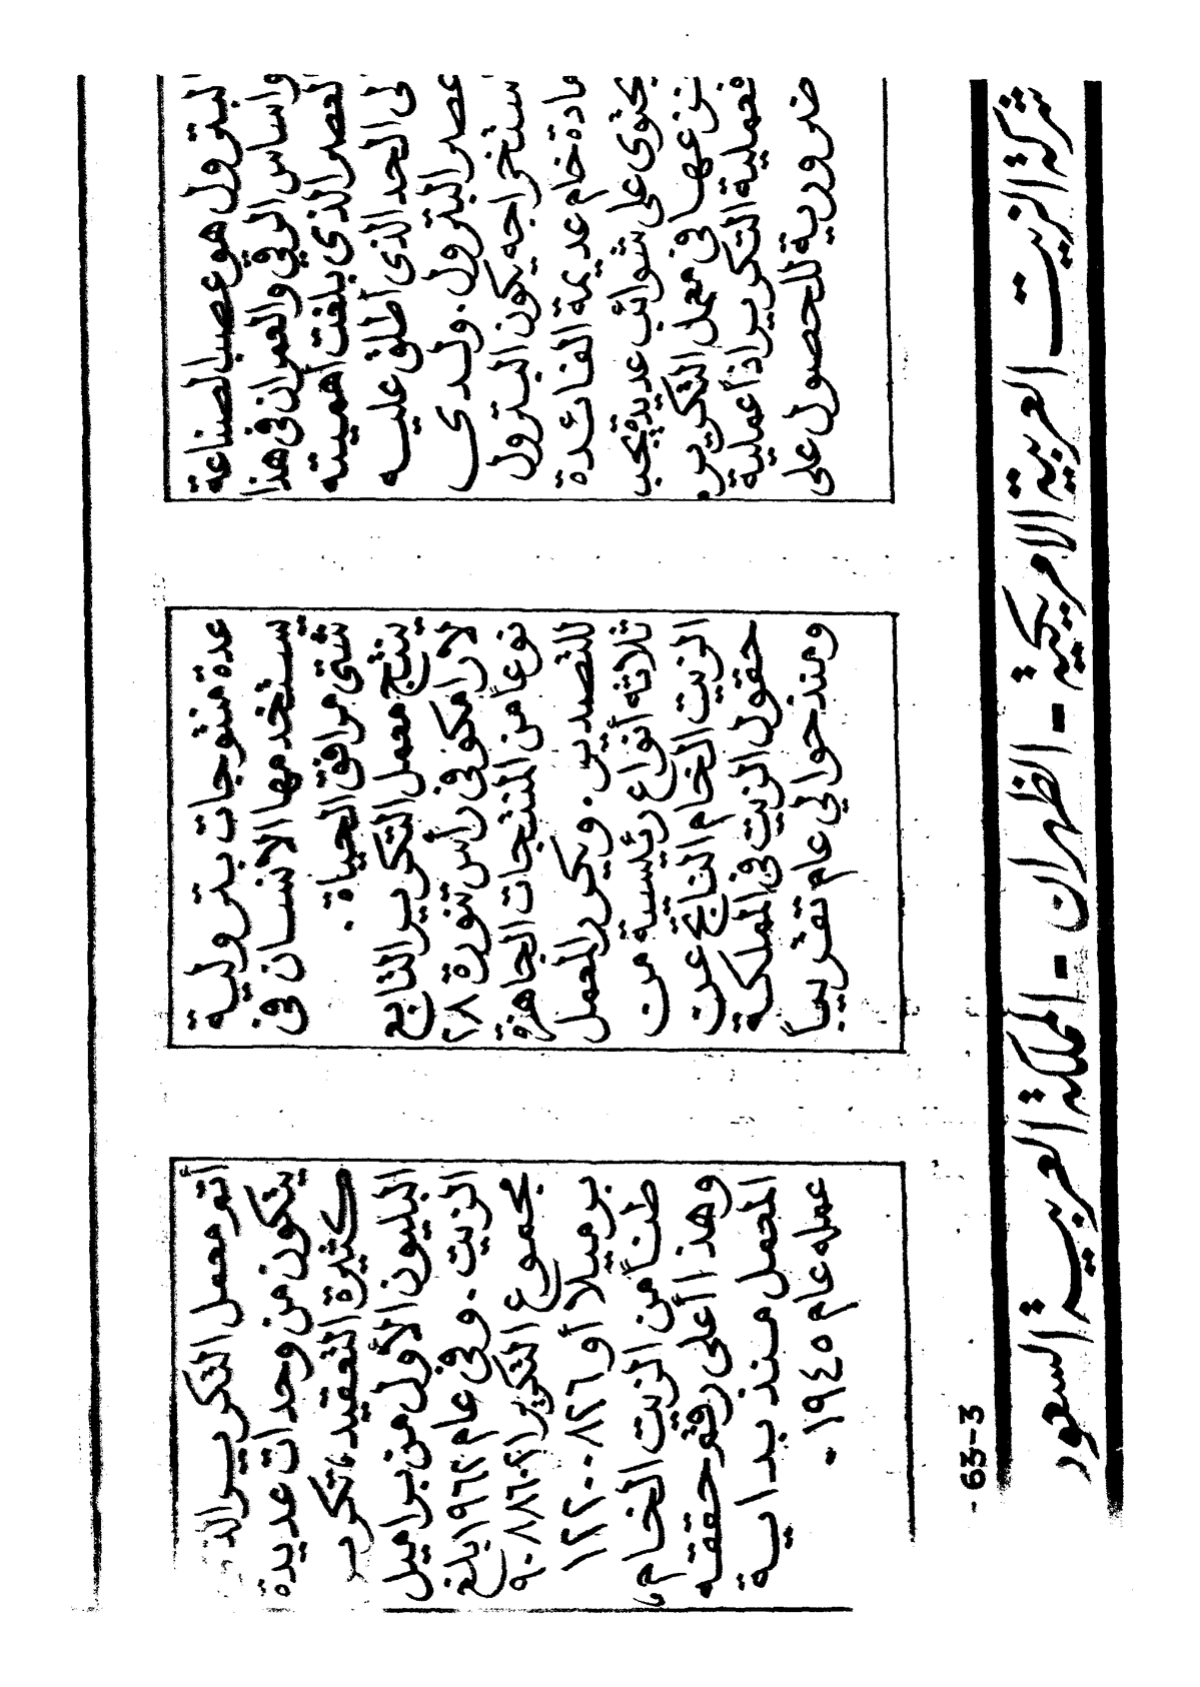 البترول هو عصب الصناعة
واساس الرقي والعمران في هذا
العصر الذي بلغت أهميته
الى الحد الذي أطلق عليه
عصر البترول . ولدى
استخراجه يكون البترول
مادة خام عديمة الفائدة
يحتوي على شوائب عديدة يجب
نزعها في معمل التكرير .
فعملية التكرير اذاً عملية
ضرورية للحصول على
عدة منتوجات بترولية
يستخدمها الانسان في
شتى مرافق الحياة .
ينتج معمل التكرير التابع
لأرامكو في رأس تنورة ٢٨
نوعاً من المنتجات الجاهزة
للتصدير . ويكرر المعمل
ثلاثة أنواع رئيسية من
الزيت الخام الناتج عن
حقول الزيت في المملكة
ومنذ حوالي عام تقريباً
أتم معمل التكرير
يتكون من وحدات عديدة
كثيرة التعقيد ، تكرير
البليون الأول من براميل
الزيت . وفي عام ١٩٦٢ بلغ
مجموع التكرير
برميلاً أو ١٢٢٠٠٨٢٦
طناً من الزيت الخام ،
وهذا أعلى رقم حققه
المعمل منذ بداية
عمله عام ١٩٤٥ .
63-3 -
شركة الزيت العربية الامريكية - الظهران - المملكة العربية السعود